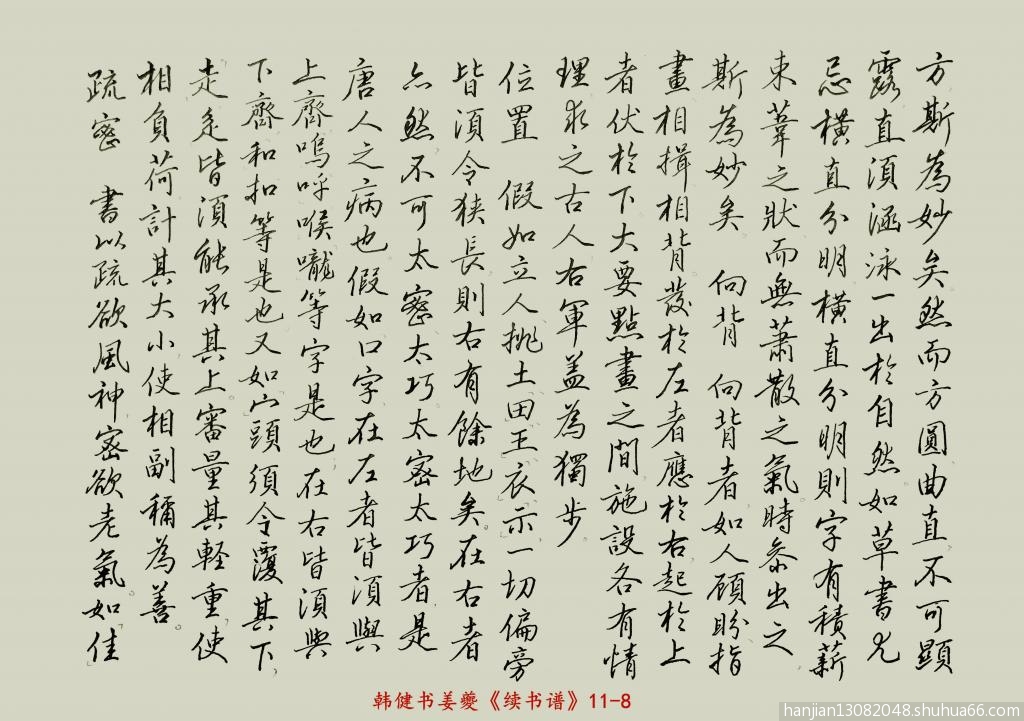 方斯為妙矣然而方圓曲直不可顯
露直須涵泳一出於自然如草書尤
忌橫直分明橫直分明則字有積薪
束葦之狀而無蕭散之氣時參出之
斯為妙矣 向背 向背者如人顧盼指
畫相揖相背發於左者應於右起於上
者伏於下大要點畫之間施設各有情
理求之古人右軍蓋為獨步
位置 假如立人挑土田王衣示一切偏旁
皆須令狹長則右有餘地矣在右者
亦然不可太密太巧太密太巧者是
唐人之病也假如口字在左者皆須與
上齊嗚呼喉嚨等字是也在右皆須與
下齊和扣等是也又如宀頭須令覆其下
走辵皆須能承其上審量其輕重使
相負荷計其大小使相副稱為善
疏密 書以疏欲風神密欲老氣如佳
韩健书姜夔《续书谱》11-8
hanjian13082048.shuhua66.com